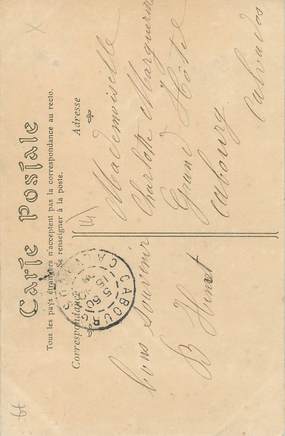 Carte Postale
Tous les pays étrangers n'acceptent pas la correspondance au recto.
Se renseigner à la poste.
Correspondance
Adresse
Bons Souvenir
Mademoiselle
Charlotte Marguerin
Grand Hôtel
Cabourg
Calvados
CABOURG
CALVADOS